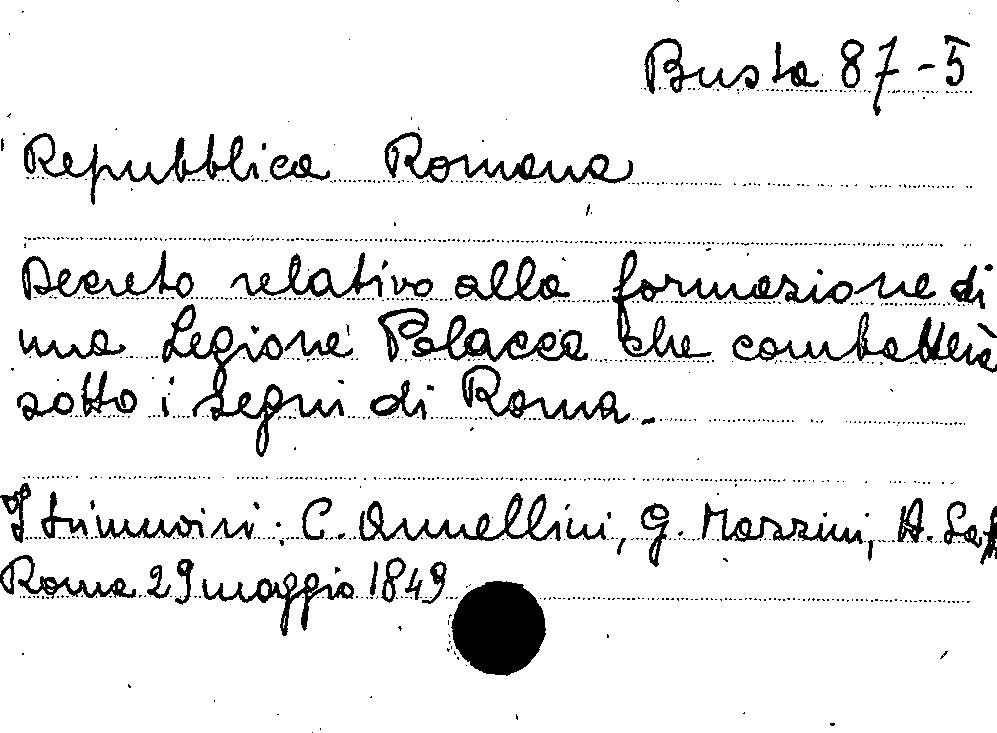 Busta 87-5
Repubblica Romana
Decreto relativo alla formazione di
una Legione Polacca che combatterà
sotto i segni di Roma.
I triumviri: C. Armellini, G. Mazzini, A. Saf
Roma 29 maggio 1849